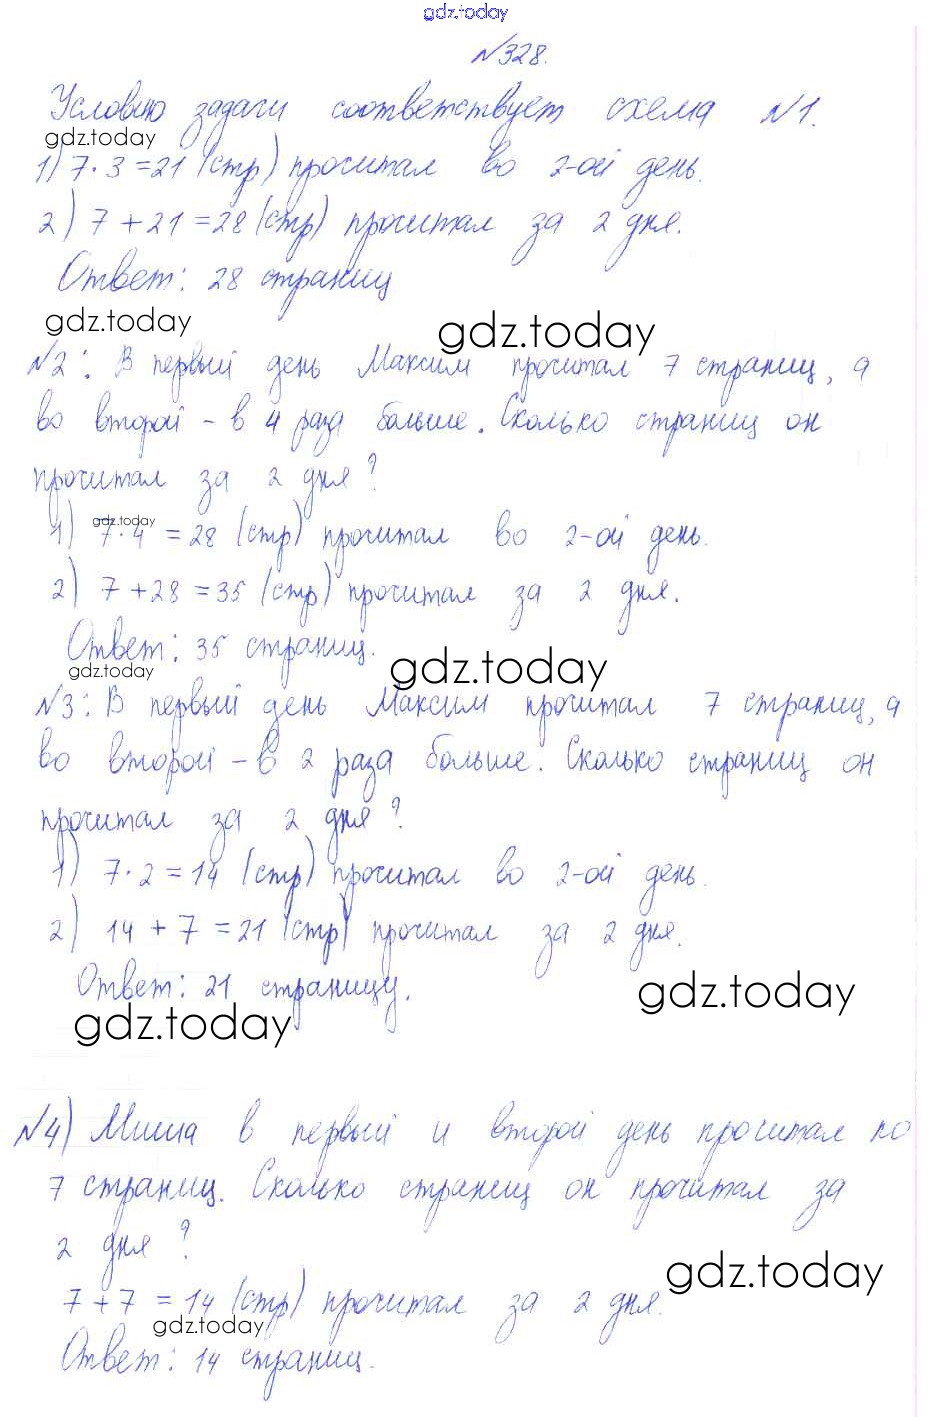 gdz.today
№328.
Условию задачи соответствует схема №1.
gdz.today
1) 7·3=21 (стр) прочитал во 2-ой день.
2) 7+21=28 (стр) прочитал за 2 дня.
Ответ: 28 страниц
gdz.today gdz.today
№2: В первый день Максим прочитал 7 страниц, а
во второй - в 4 раза больше. Сколько страниц он
прочитал за 2 дня?
gdz.today
1) 7·4 = 28 (стр) прочитал во 2-ой день.
2) 7+28=35 (стр) прочитал за 2 дня.
Ответ: 35 страниц.
gdz.today gdz.today
№3: В первый день Максим прочитал 7 страниц, а
во второй - в 2 раза больше. Сколько страниц он
прочитал за 2 дня?
1) 7·2=14 (стр) прочитал во 2-ой день.
2) 14+7=21 (стр) прочитал за 2 дня.
Ответ: 21 страницу.
gdz.today
gdz.today
№4) Миша в первый и второй день прочитал по
7 страниц. Сколько страниц он прочитал за
2 дня?
gdz.today
7+7=14 (стр) прочитал за 2 дня.
gdz.today
Ответ: 14 страниц.